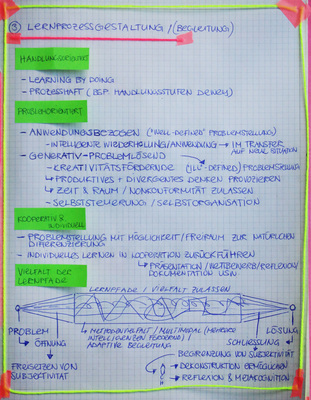 ③ LERNPROZESSGESTALTUNG / (BEGLEITUNG)
HANDLUNGSORIENTIERT
- LEARNING BY DOING
- PROZESSHAFT (BSP. HANDLUNGSSTUFEN DEWEY)
PROBLEMORIENTIERT
- ANWENDUNGSBEZOGEN ("WELL-DEFINED" PROBLEMSTELLUNG)
- INTELLIGENTE WIEDERHOLUNG/ANWENDUNG → IM TRANSFER
AUF NEUE SITUATION
- GENERATIV-PROBLEMLÖSEND
- KREATIVITÄTSFÖRDERNDE ("ILL"-DEFINED) PROBLEMSTELLUNG
↳ PRODUKTIVES + DIVERGENTES DENKEN PROVOZIEREN
↳ ZEIT & RAUM / NONKONFORMITÄT ZULASSEN
↳ SELBSTSTEUERUNG / SELBSTORGANISATION
KOOPERATIV &
INDIVIDUELL
- PROBLEMSTELLUNG MIT MÖGLICHKEIT/FREIRAUM ZUR NATÜRLICHEN
DIFFERENZIERUNG
- INDIVIDUELLES LERNEN IN KOOPERATION ZURÜCKFÜHREN
↳ PRÄSENTATION/WETTBEWERB/REFLEXION/
DOKUMENTATION USW.
VIELFALT DER
LERNPFADE
LERNPFADE / VIELFALT ZULASSEN
PROBLEM
↳ ÖFFNUNG
FREISETZEN VON
SUBJEKTIVITÄT
↳ METHODENVIELFALT / MULTIMODAL (MEHRERE
INTELLIGENZEN FÖRDERND) /
ADAPTIVE BEGLEITUNG
LÖSUNG
SCHLIESSUNG
BEGRENZUNG VON SUBJEKTIVITÄT
DEKONSTRUKTION ERMÖGLICHEN
REFLEXION & METAKOGNITION